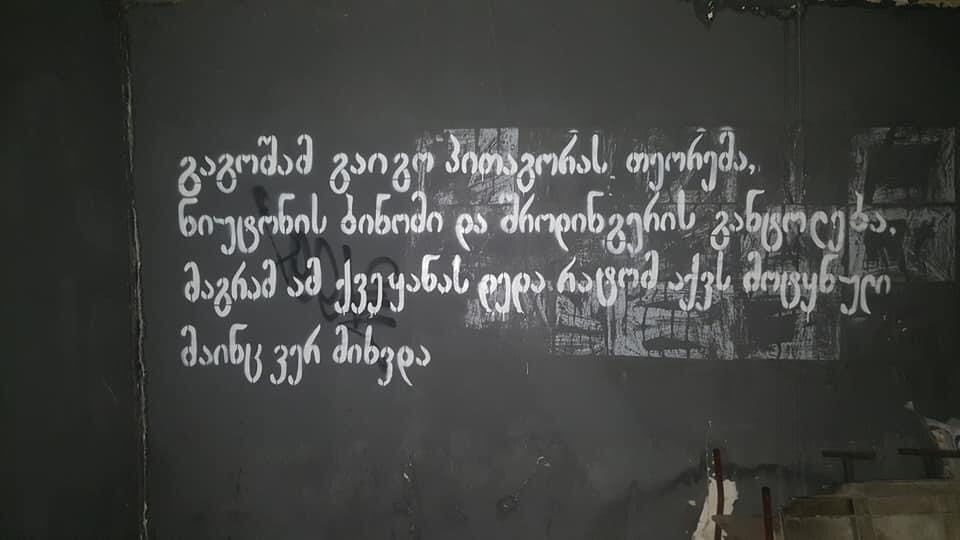 გაგოშამ გაიგო პითაგორას თეორემა,
ნიუტონის ბინომი და შროდინგერის განტოლება,
მაგრამ ამ ქვეყანას დედა რატომ აქვს მოტყნული
მაინც ვერ მიხვდა